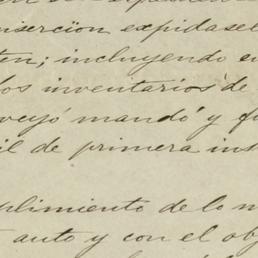 inserción expidase
ten; incluyendo en
los inventarios de
veyó mandó y f
il de primera ins
plimiento de lo m
auto y con el obj